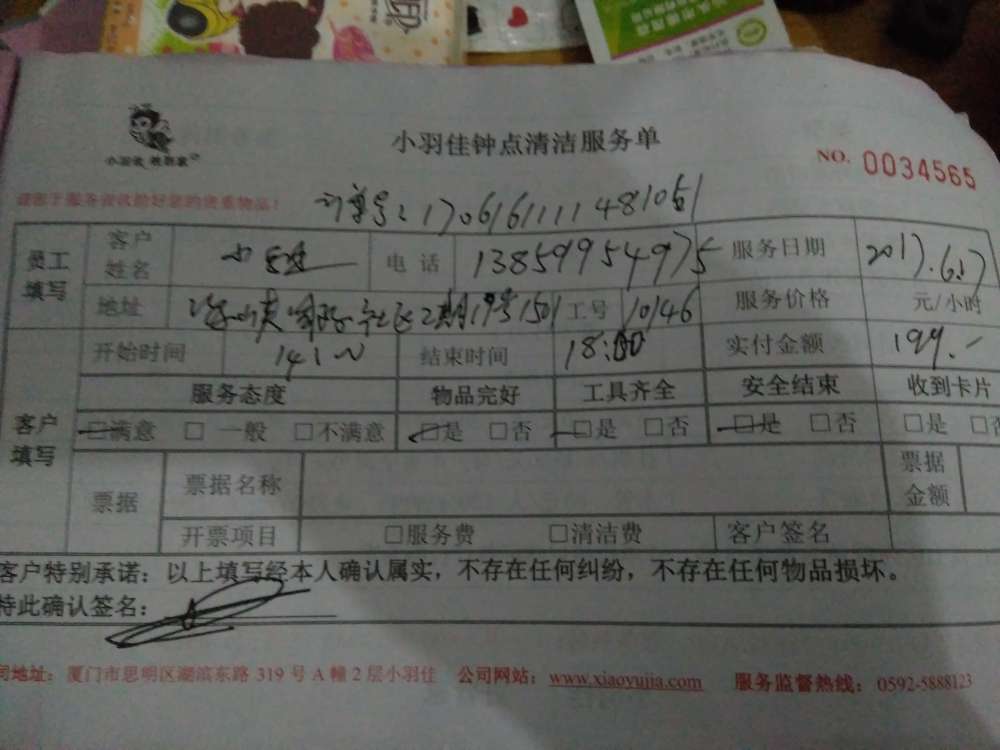 小羽佳钟点清洁服务单
NO. 0034565
订单号:
员工填写 客户姓名 电话 13859954975 服务日期 2017.6.17
地址 2期19号1501 工号 10146 服务价格 元/小时
客户填写 开始时间 结束时间 18:00 实付金额 199.-
服务态度 物品完好 工具齐全 安全结束 收到卡片
□满意 □一般 □不满意 □是 □否 □是 □否 □是 □否 □是 □否
票据 票据名称 票据金额
开票项目 □服务费 □清洁费 客户签名
客户特别承诺:以上填写经本人确认属实,不存在任何纠纷,不存在任何物品损坏。
特此确认签名:
司地址:厦门市思明区湖滨东路 319 号 A 幢 2 层小羽佳 公司网站:www.xiaoyujia.com 服务监督热线:0592-5888123